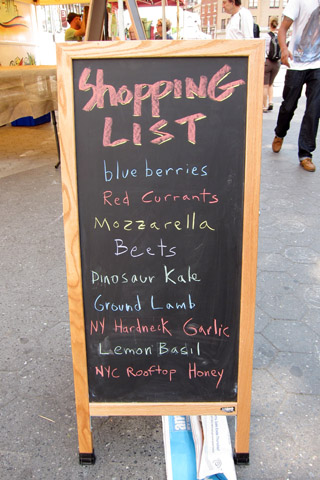 Shopping
List
blueberries
Red Currants
Mozzarella
Beets
Dinosaur Kale
Ground Lamb
NY Hardneck Garlic
Lemon Basil
NYC Rooftop Honey